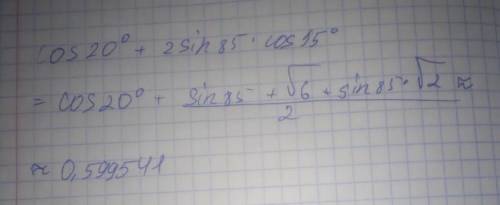 cos20° + 2sin85·cos15°
= cos20° + (sin85 + √6 + sin85·√2)/2 ≈
≈ 0,599541